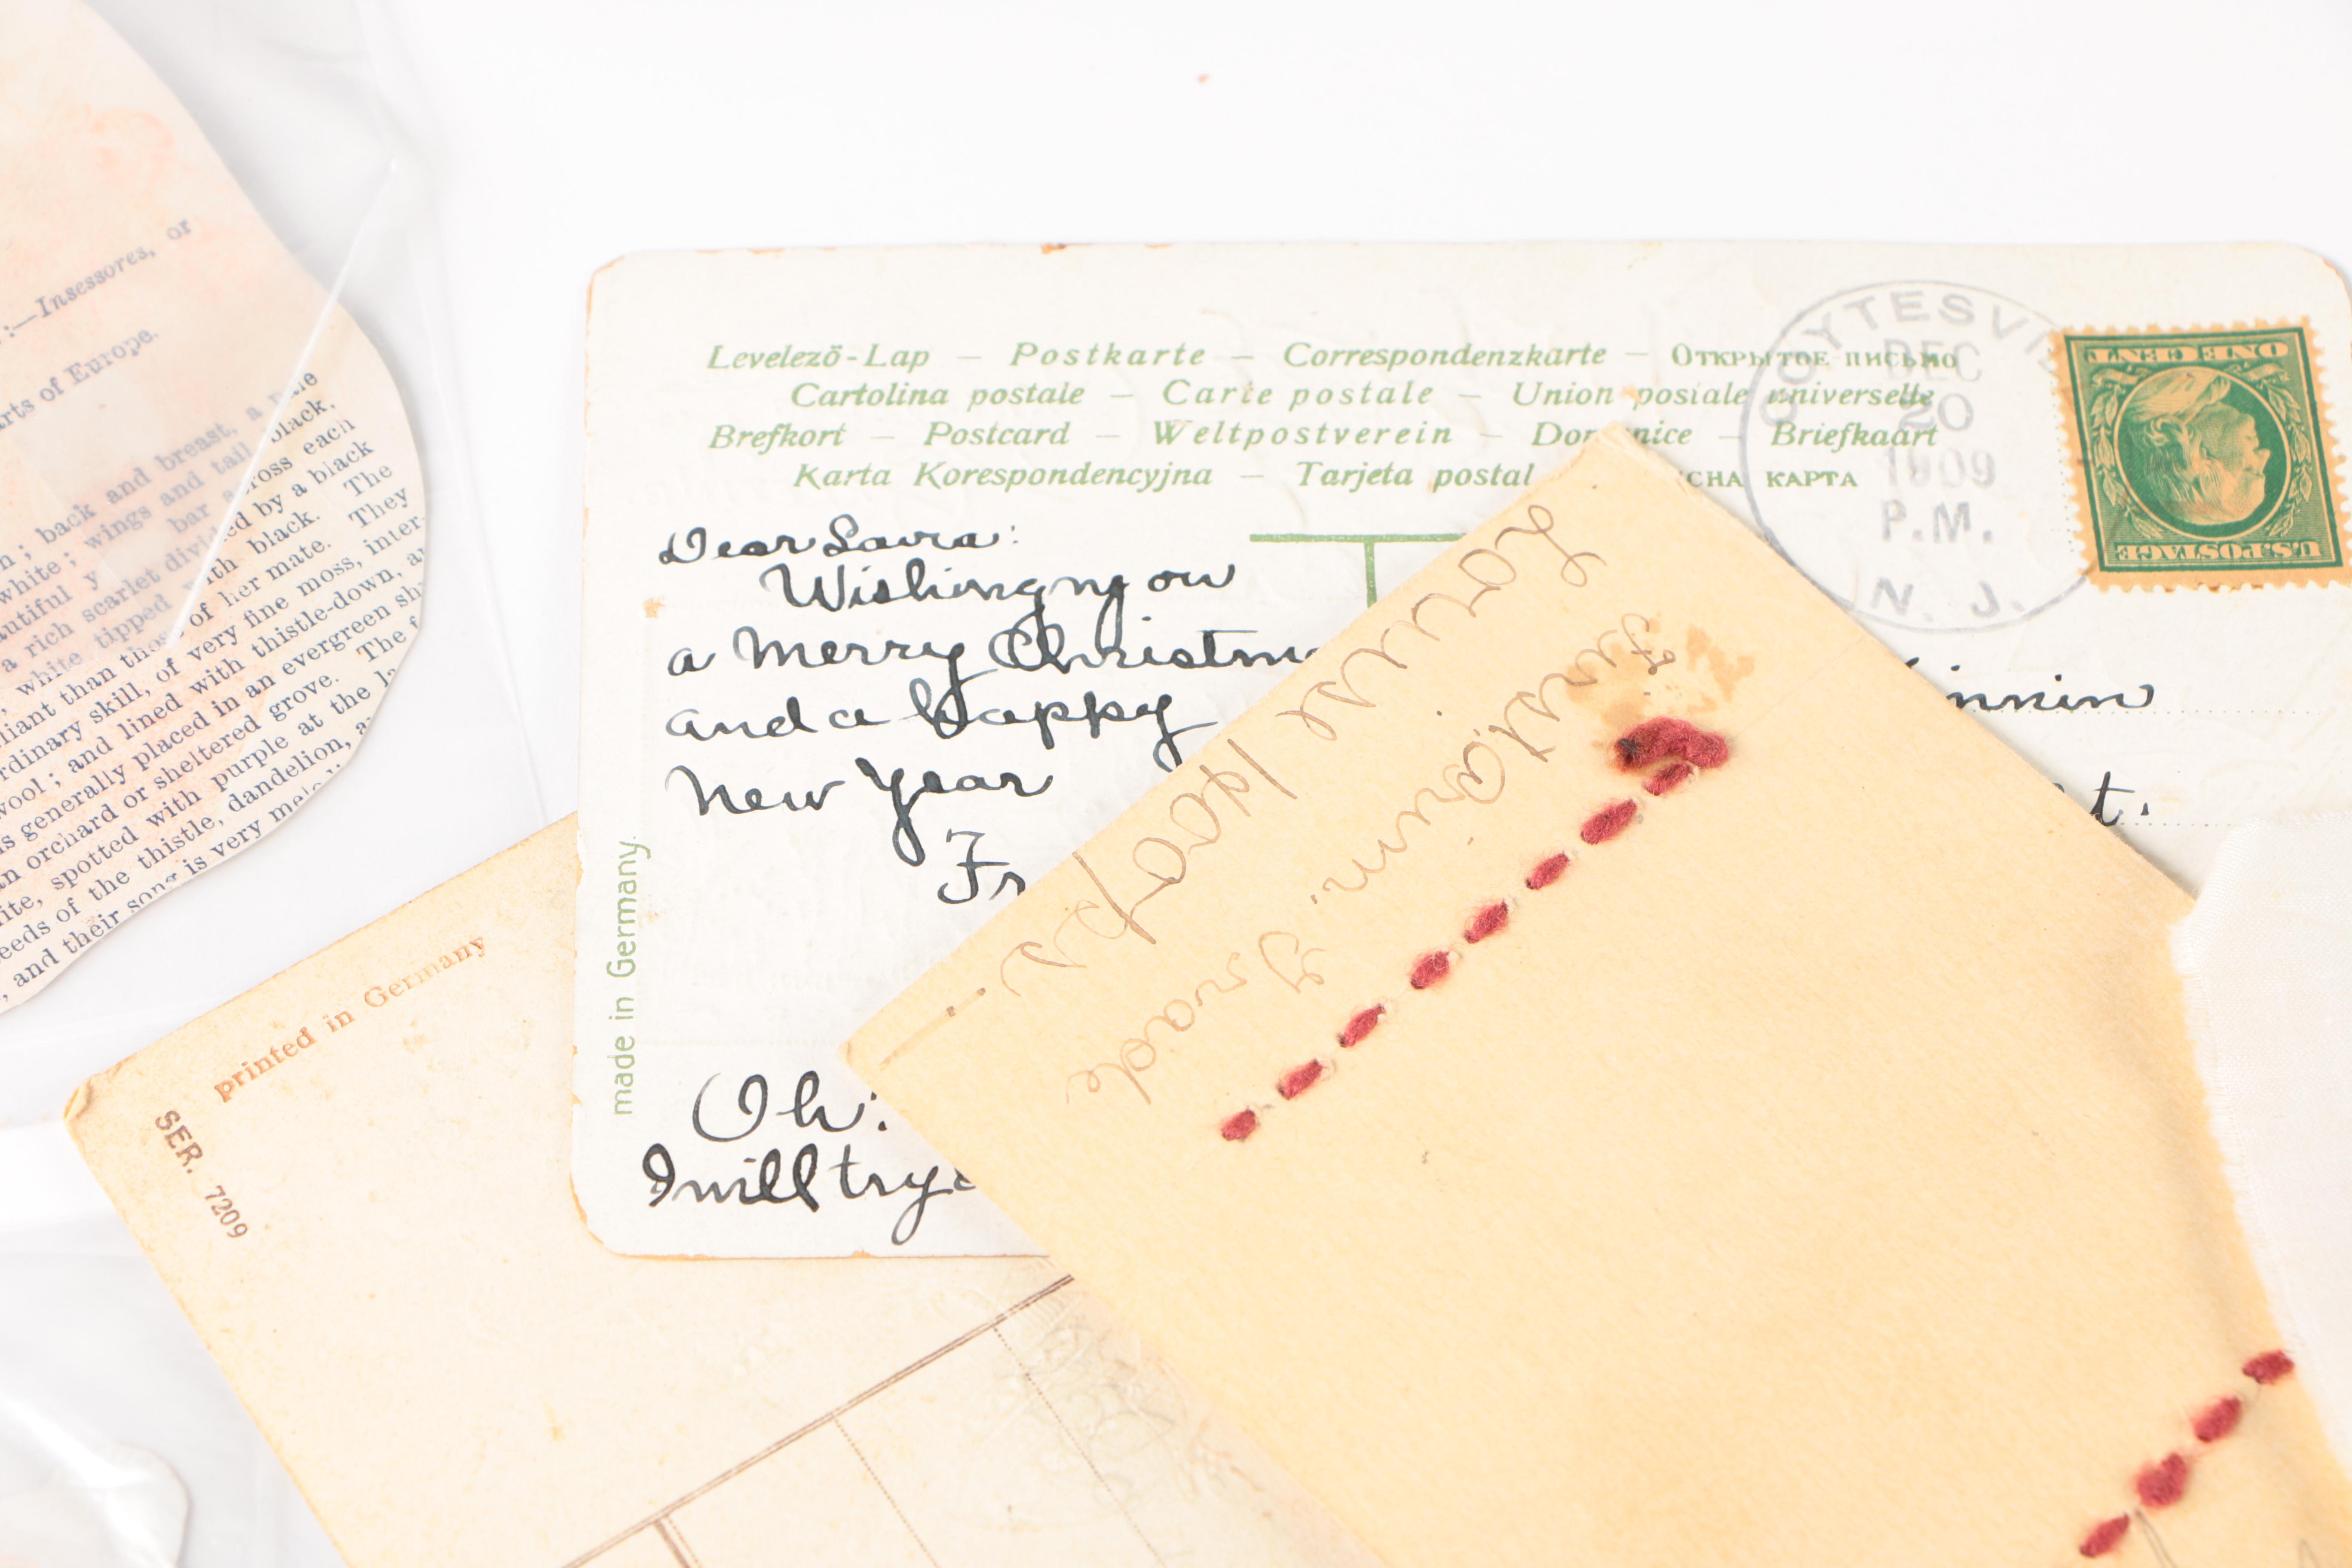 :—Insessores, or
rts of Europe.
; back and breast, a
white; wings and tail black,
bar across each
a rich scarlet divided by a black
white tipped with black. The
liant than those of her mate. They
rdinary skill, of very fine moss, inter-
wool; and lined with thistle-down, a
s generally placed in an evergreen sh
n orchard or sheltered grove. The f
ite, spotted with purple at the la
eeds of the thistle, dandelion, a
, and their song is very
printed in Germany
SER. 7209
Levelező-Lap – Postkarte – Correspondenzkarte – Открытое письмо
Cartolina postale – Carte postale – Union postale universelle
Brefkort – Postcard – Weltpostverein – Dopisnice – Briefkaart
Karta Korespondencyjna – Tarjeta postal СНА КАРТА
COYTESVI
DEC
20
1909
P.M.
N. J.
ONE CENT
U.S. POSTAGE
Dear Laura:
Wishing you
a Merry Christm
and a happy
New Year
Fr
Oh:
I will try
made in Germany.
nnin
t.
Louise
First Prim. grade